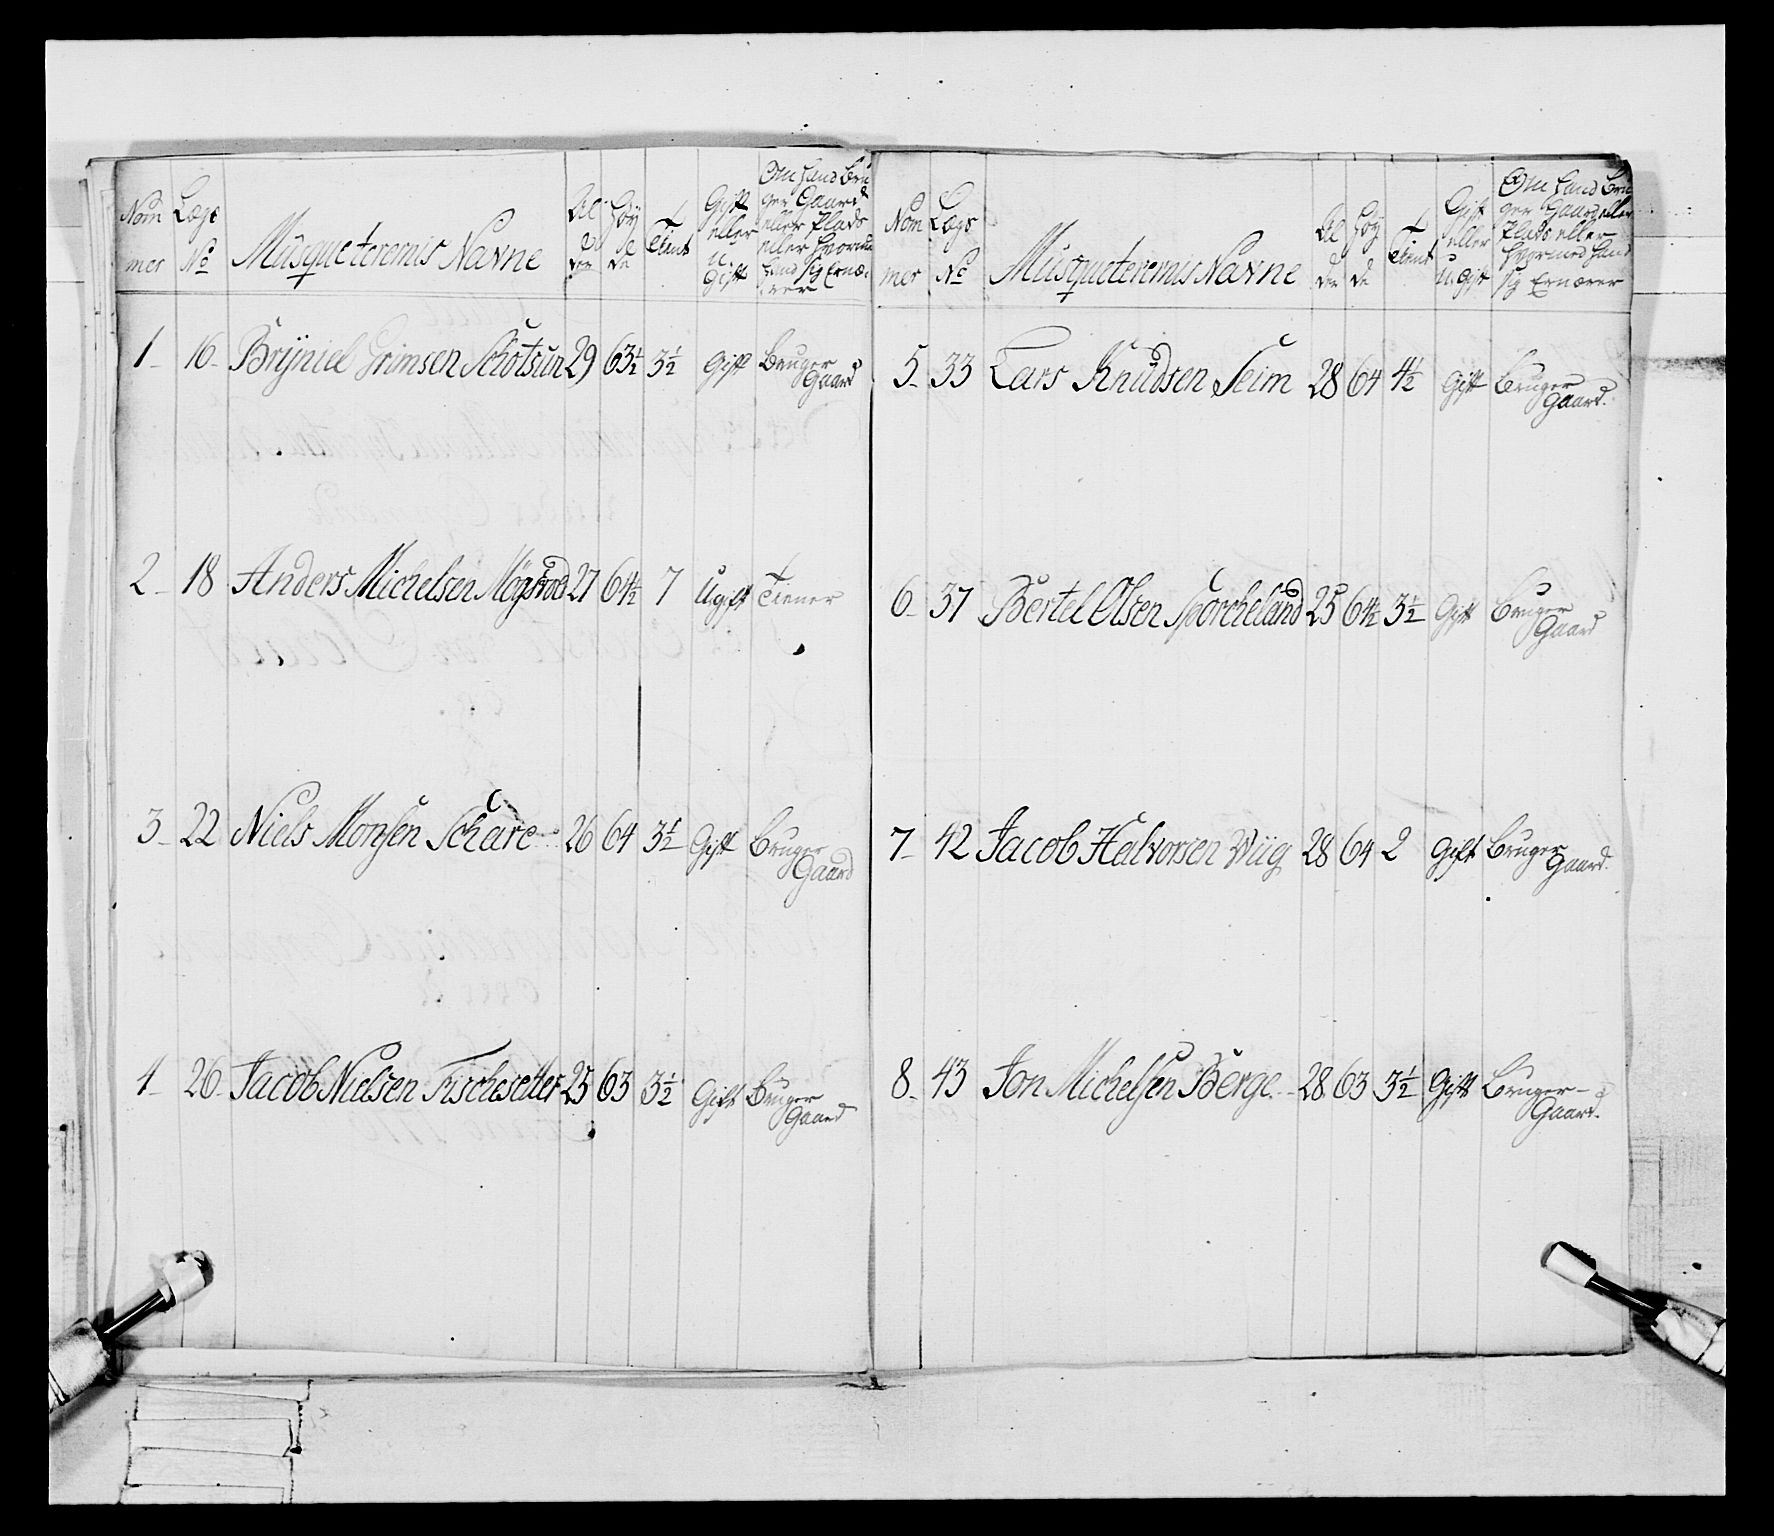 Nom mer | Legs No | Musqueterernis Navne | Al der | Høy de | Tient | Gift eller u. Gift | Om hand Bruger Gaard eller Plads eller Hvormed hand sig Ernærer
1 | 16 | Bryniel Grimsen Schotsun | 29 | 63½ | 3½ | Gift | Bruger Gaard
2 | 18 | Anders Michelsen | 27 | 64½ | 7 | Ugift | Tiener
3 | 22 | Niels Monsen Schare | 26 | 64 | 3½ | Gift | Bruger Gaard
4 | 26 | Jacob Nielsen Fischesetter | 25 | 63 | 3½ | Gift | Bruger Gaard
Nom mer | Legs No | Musqueterernis Navne | Al der | Høy de | Tient | Gift eller u. Gift | Om hand Bruger Gaard eller Plads eller Hvormed hand sig Ernærer
5 | 33 | Lars Knudsen Seim | 28 | 64 | 4½ | Gift | Bruger Gaard
6 | 37 | Bertel Olsen Sporcheland | 25 | 64½ | 3½ | Gift | Bruger Gaard
7 | 42 | Jacob Halvorsen Wiig | 28 | 64 | 2 | Gift | Bruger Gaard
8 | 43 | Jon Michelsen Berge | 28 | 63 | 3½ | Gift | Bruger Gaard